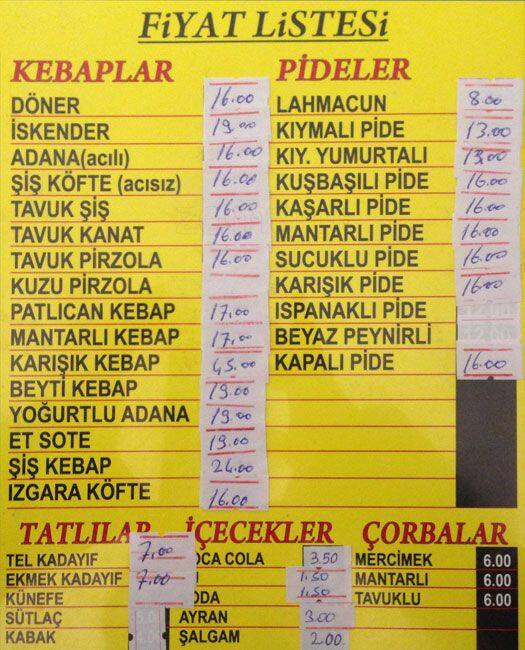 FİYAT LİSTESİ
KEBAPLAR
DÖNER 16.00
İSKENDER 19.00
ADANA(acılı) 16.00
ŞİŞ KÖFTE (acısız) 16.00
TAVUK ŞİŞ 16.00
TAVUK KANAT 16.00
TAVUK PİRZOLA 16.00
KUZU PİRZOLA
PATLICAN KEBAP 17.00
MANTARLI KEBAP 17.00
KARIŞIK KEBAP 45.00
BEYTİ KEBAP 19.00
YOĞURTLU ADANA 19.00
ET SOTE 19.00
ŞİŞ KEBAP 24.00
IZGARA KÖFTE 16.00
PİDELER
LAHMACUN 8.00
KIYMALI PİDE 13.00
KIY. YUMURTALI 13.00
KUŞBAŞILI PİDE 16.00
KAŞARLI PİDE 16.00
MANTARLI PİDE 16.00
SUCUKLU PİDE 16.00
KARIŞIK PİDE 16.00
ISPANAKLI PİDE
BEYAZ PEYNİRLİ
KAPALI PİDE 16.00
TATLILAR
TEL KADAYIF 7.00
EKMEK KADAYIF 7.00
KÜNEFE
SÜTLAÇ
KABAK
İÇECEKLER
OCA COLA 3.50
1.50
ODA 1.50
AYRAN 3.00
ŞALGAM 2.00
ÇORBALAR
MERCİMEK 6.00
MANTARLI 6.00
TAVUKLU 6.00